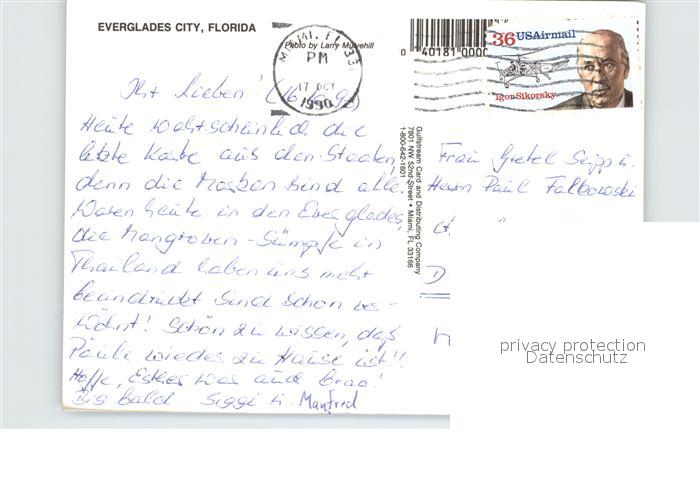 EVERGLADES CITY, FLORIDA
Photo by Larry Mulvehill
MIAMI, FL 33
PM
17 OCT
1990
0 40181 0000
36 USAirmail
Igor Sikorsky
Ihr Lieben! (16.10.90)
Heute wahrscheinlich die
letzte Karte aus den Staaten,
denn die Marken sind alle.
Waren heute in den Everglades,
die Mangroven-Sümpfe in
Thailand haben uns mehr
beeindruckt sind schon ver-
wöhnt! Schön zu wissen, daß
Pauli wieder zu Hause ist!!
Hoffe, Esther war auch brav!
Bis bald Siggi u. Manfred
Gulfstream Card and Distributing Company
7801 NW 52nd Street • Miami, FL 33166
1-800-642-1601
Frau Gretel Seipp u.
Herrn Paul Falkowski
D
privacy protection
Datenschutz